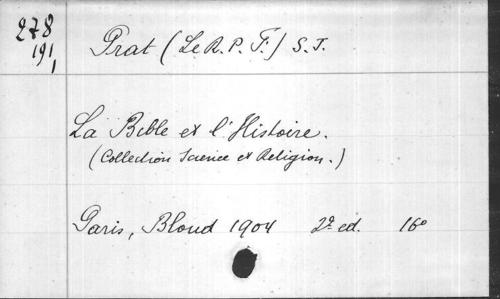 278 Prat (Le R. P. F.) S. J.
191,
La Bible et l'Histoire.
(Collection Science et Religion.)
Paris, Bloud 1904 2e ed. 16o